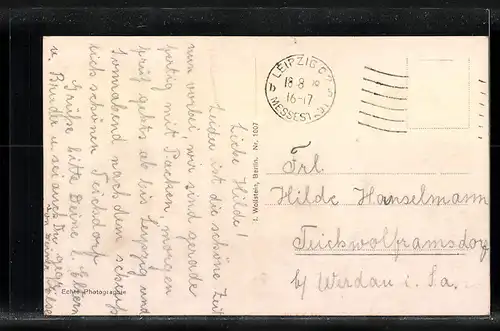 Liebe Hilde!
Leider ist die schöne Zeit
nun vorbei wir sind gerade
fertig mit Packen, morgen
früh gehts ab bis Leipzig und
Sonnabend nach dem
lich schönen Teichdorf
Grüße bitte Deine l. Eltern
u. Bruder u. sei auch Du gegr.
von Deiner
Echte Photographie
Wollstein, Berlin. Nr. 1007
LEIPZIG C 2
18.8
16-17
b
MESSEST
Frl.
Hilde Hanselmann
Teichwolframsdorf
b/ Werdau i. Sa.